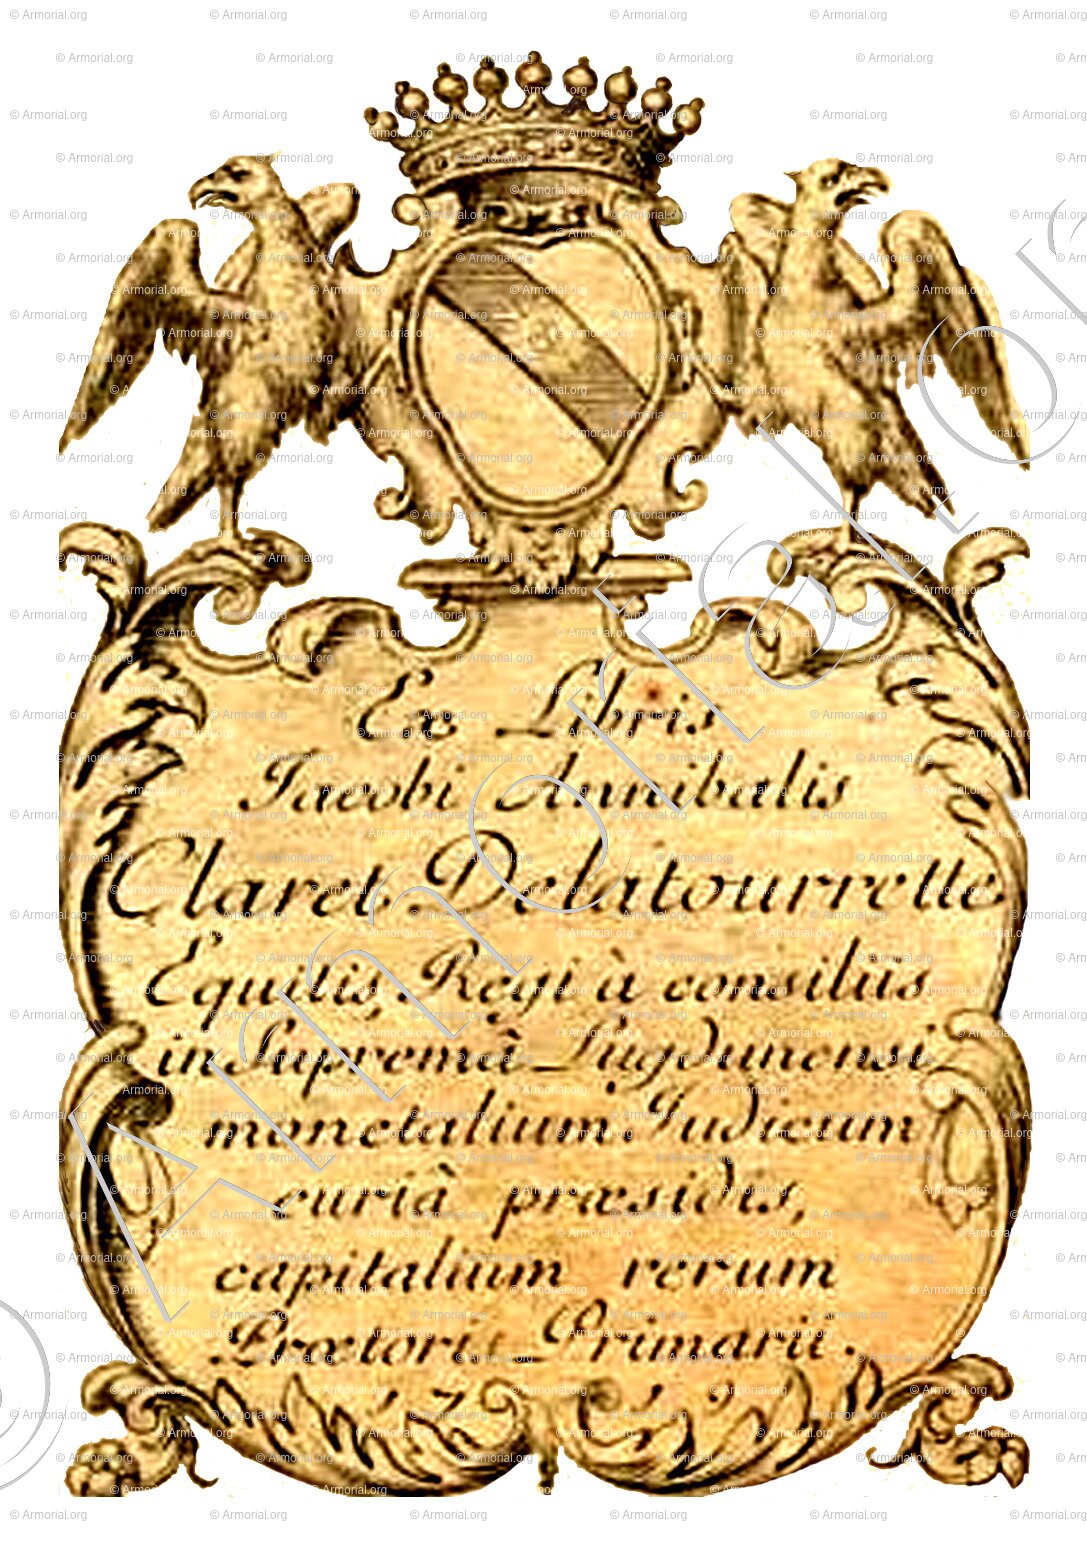 Ex Libris
Jacobi Annibalis
Claret Delatourrette
Equitis, Regi à consiliis
in Supremâ Lugdunensi
monetalium Judicum
curiâ præsidis,
capitalium rerum
Quæstoris Primarii.
1719
© Armorial.org